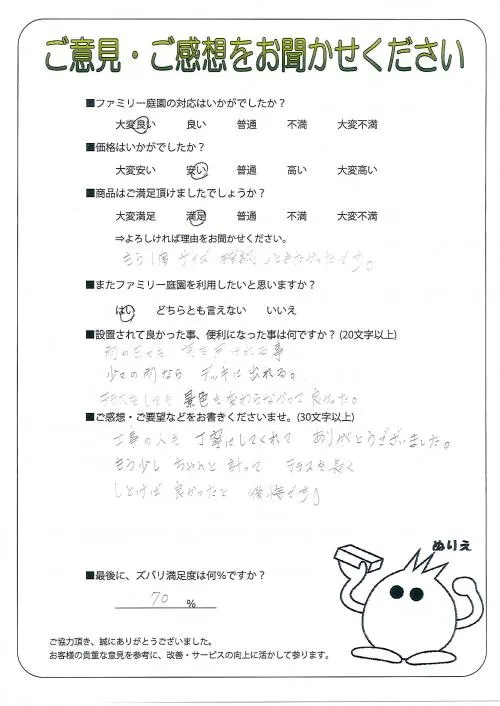 ご意見・ご感想をお聞かせください
■ファミリー庭園の対応はいかがでしたか？
大変良い 良い 普通 不満 大変不満
■価格はいかがでしたか？
大変安い 安い 普通 高い 大変高い
■商品はご満足頂けましたでしょうか？
大変満足 満足 普通 不満 大変不満
⇒よろしければ理由をお聞かせください。
もう1度サイズ 確認 しときたかったです。
■またファミリー庭園を利用したいと思いますか？
はい どちらとも言えない いいえ
■設置されて良かった事、便利になった事は何ですか？(20文字以上)
事
少々の雨なら デッキに出れる。
テラスをしても 景色も変わらなくて良かった。
■ご感想・ご要望などをお書きくださいませ。(30文字以上)
工事の人も 丁寧にしてくれて ありがとうございました。
もう少し ちゃんと計って テラスを長く
しとけば 良かったと 後悔です。
ぬりえ
■最後に、ズバリ満足度は何%ですか？
70 %
ご協力頂き、誠にありがとうございました。
お客様の貴重な意見を参考に、改善・サービスの向上に活かして参ります。